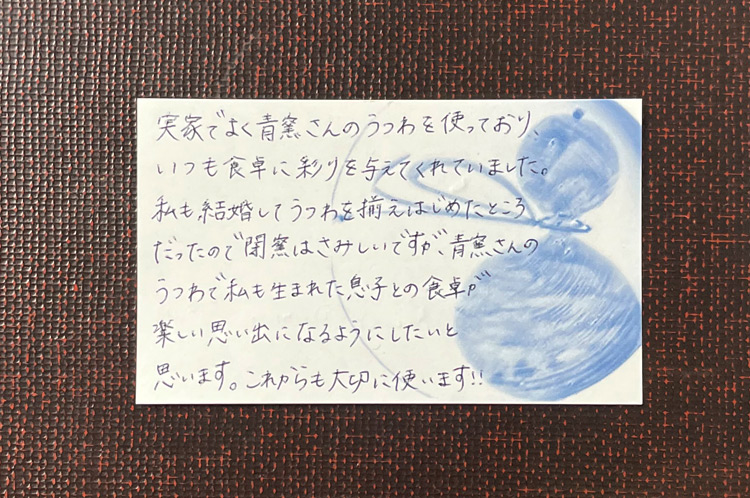 実家でよく青窯さんのうつわを使っており、
いつも食卓に彩りを与えてくれていました。
私も結婚してうつわを揃えはじめたところ
だったので閉窯はさみしいですが、青窯さんの
うつわで私も生まれた息子との食卓が
楽しい思い出になるようにしたいと
思います。これからも大切に使います!!